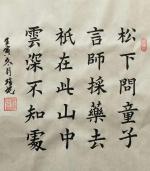 松下問童子
言師採藥去
祇在此山中
雲深不知處